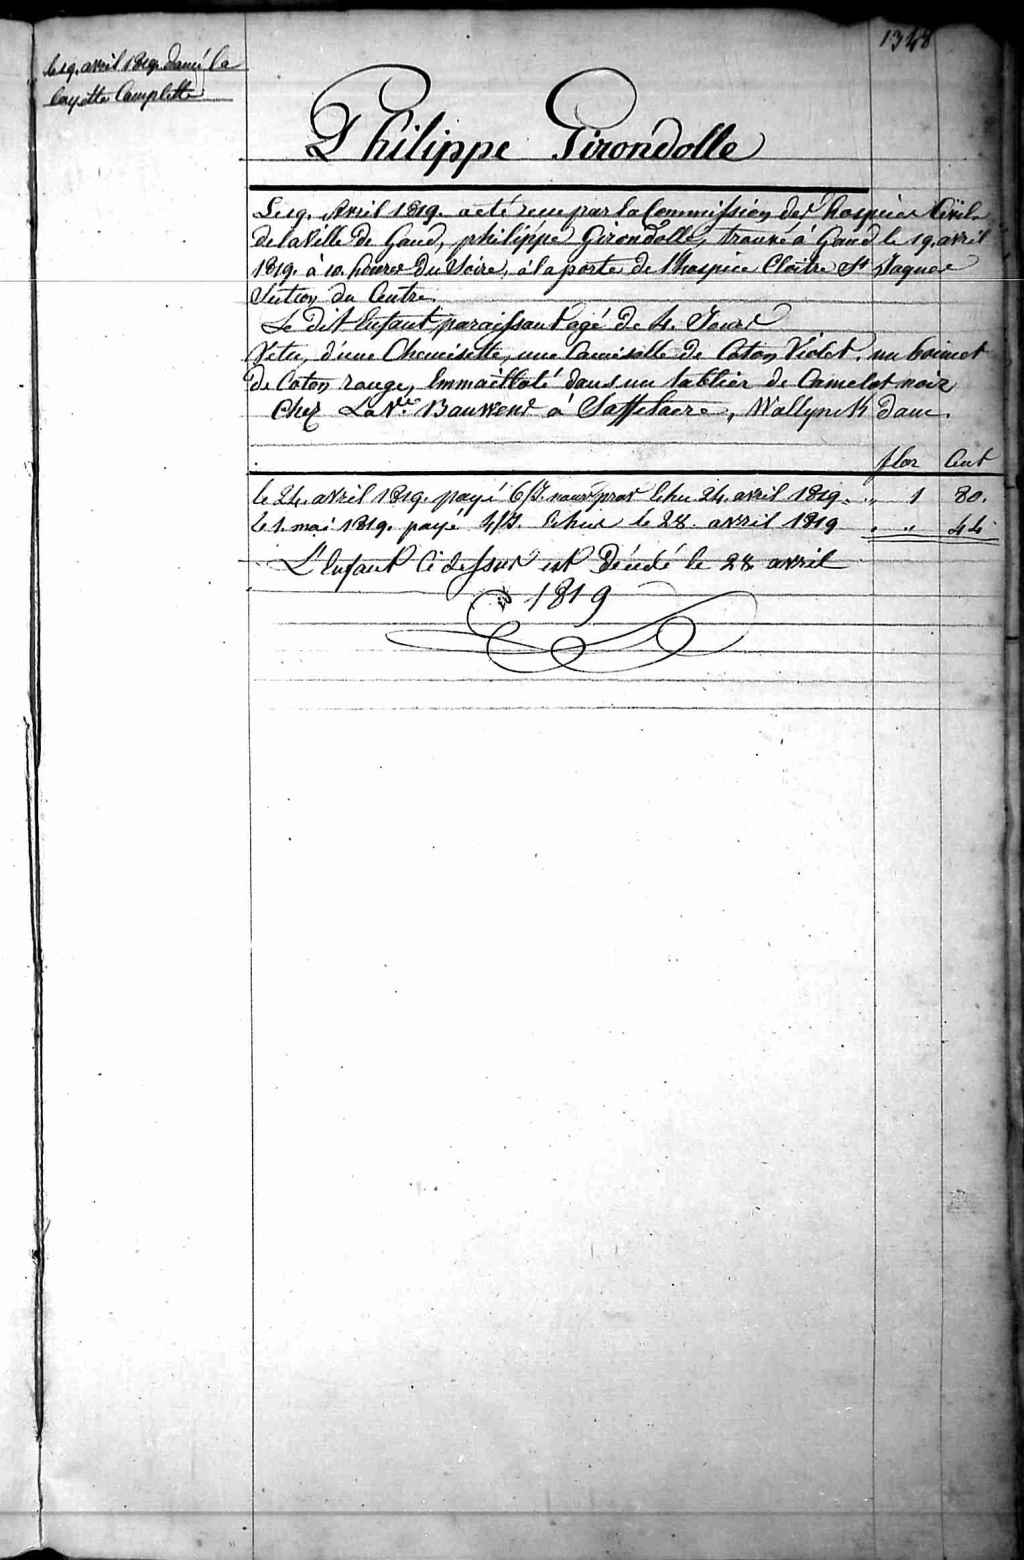 1348
le 19. avril 1819. donné la
layette Complette
Philippe Girondolle
Le 19. Avril 1819. a été recu par la Commission des hospices Civils
de la Ville de Gand, philippe Girondolle, trouvé à Gand le 19. avril
1819. à 10. heures du Soire, à la porte de l'hospice Cloitre St Jaques
Section du Centre.
Le dit Enfant, paraissant agé de 4. Jours
Vetu, d'une Chemisette, une Camisolle de Coton Violet, un boinet
de Coton rouge, Emmaillolé dans un tablier de Camelot noir
Chez La Ve Bauwens à Saffelaere, Wallynck dam.
flor Cent
le 24. avril 1819. payé 6/J. nour prov Echu 24. avril 1819. " 1 80.
le 1. mai 1819. payé 4/J. Echus le 28. avril 1819 " " 44
L'Enfant Ci dessus est Décédé le 28 avril
1819